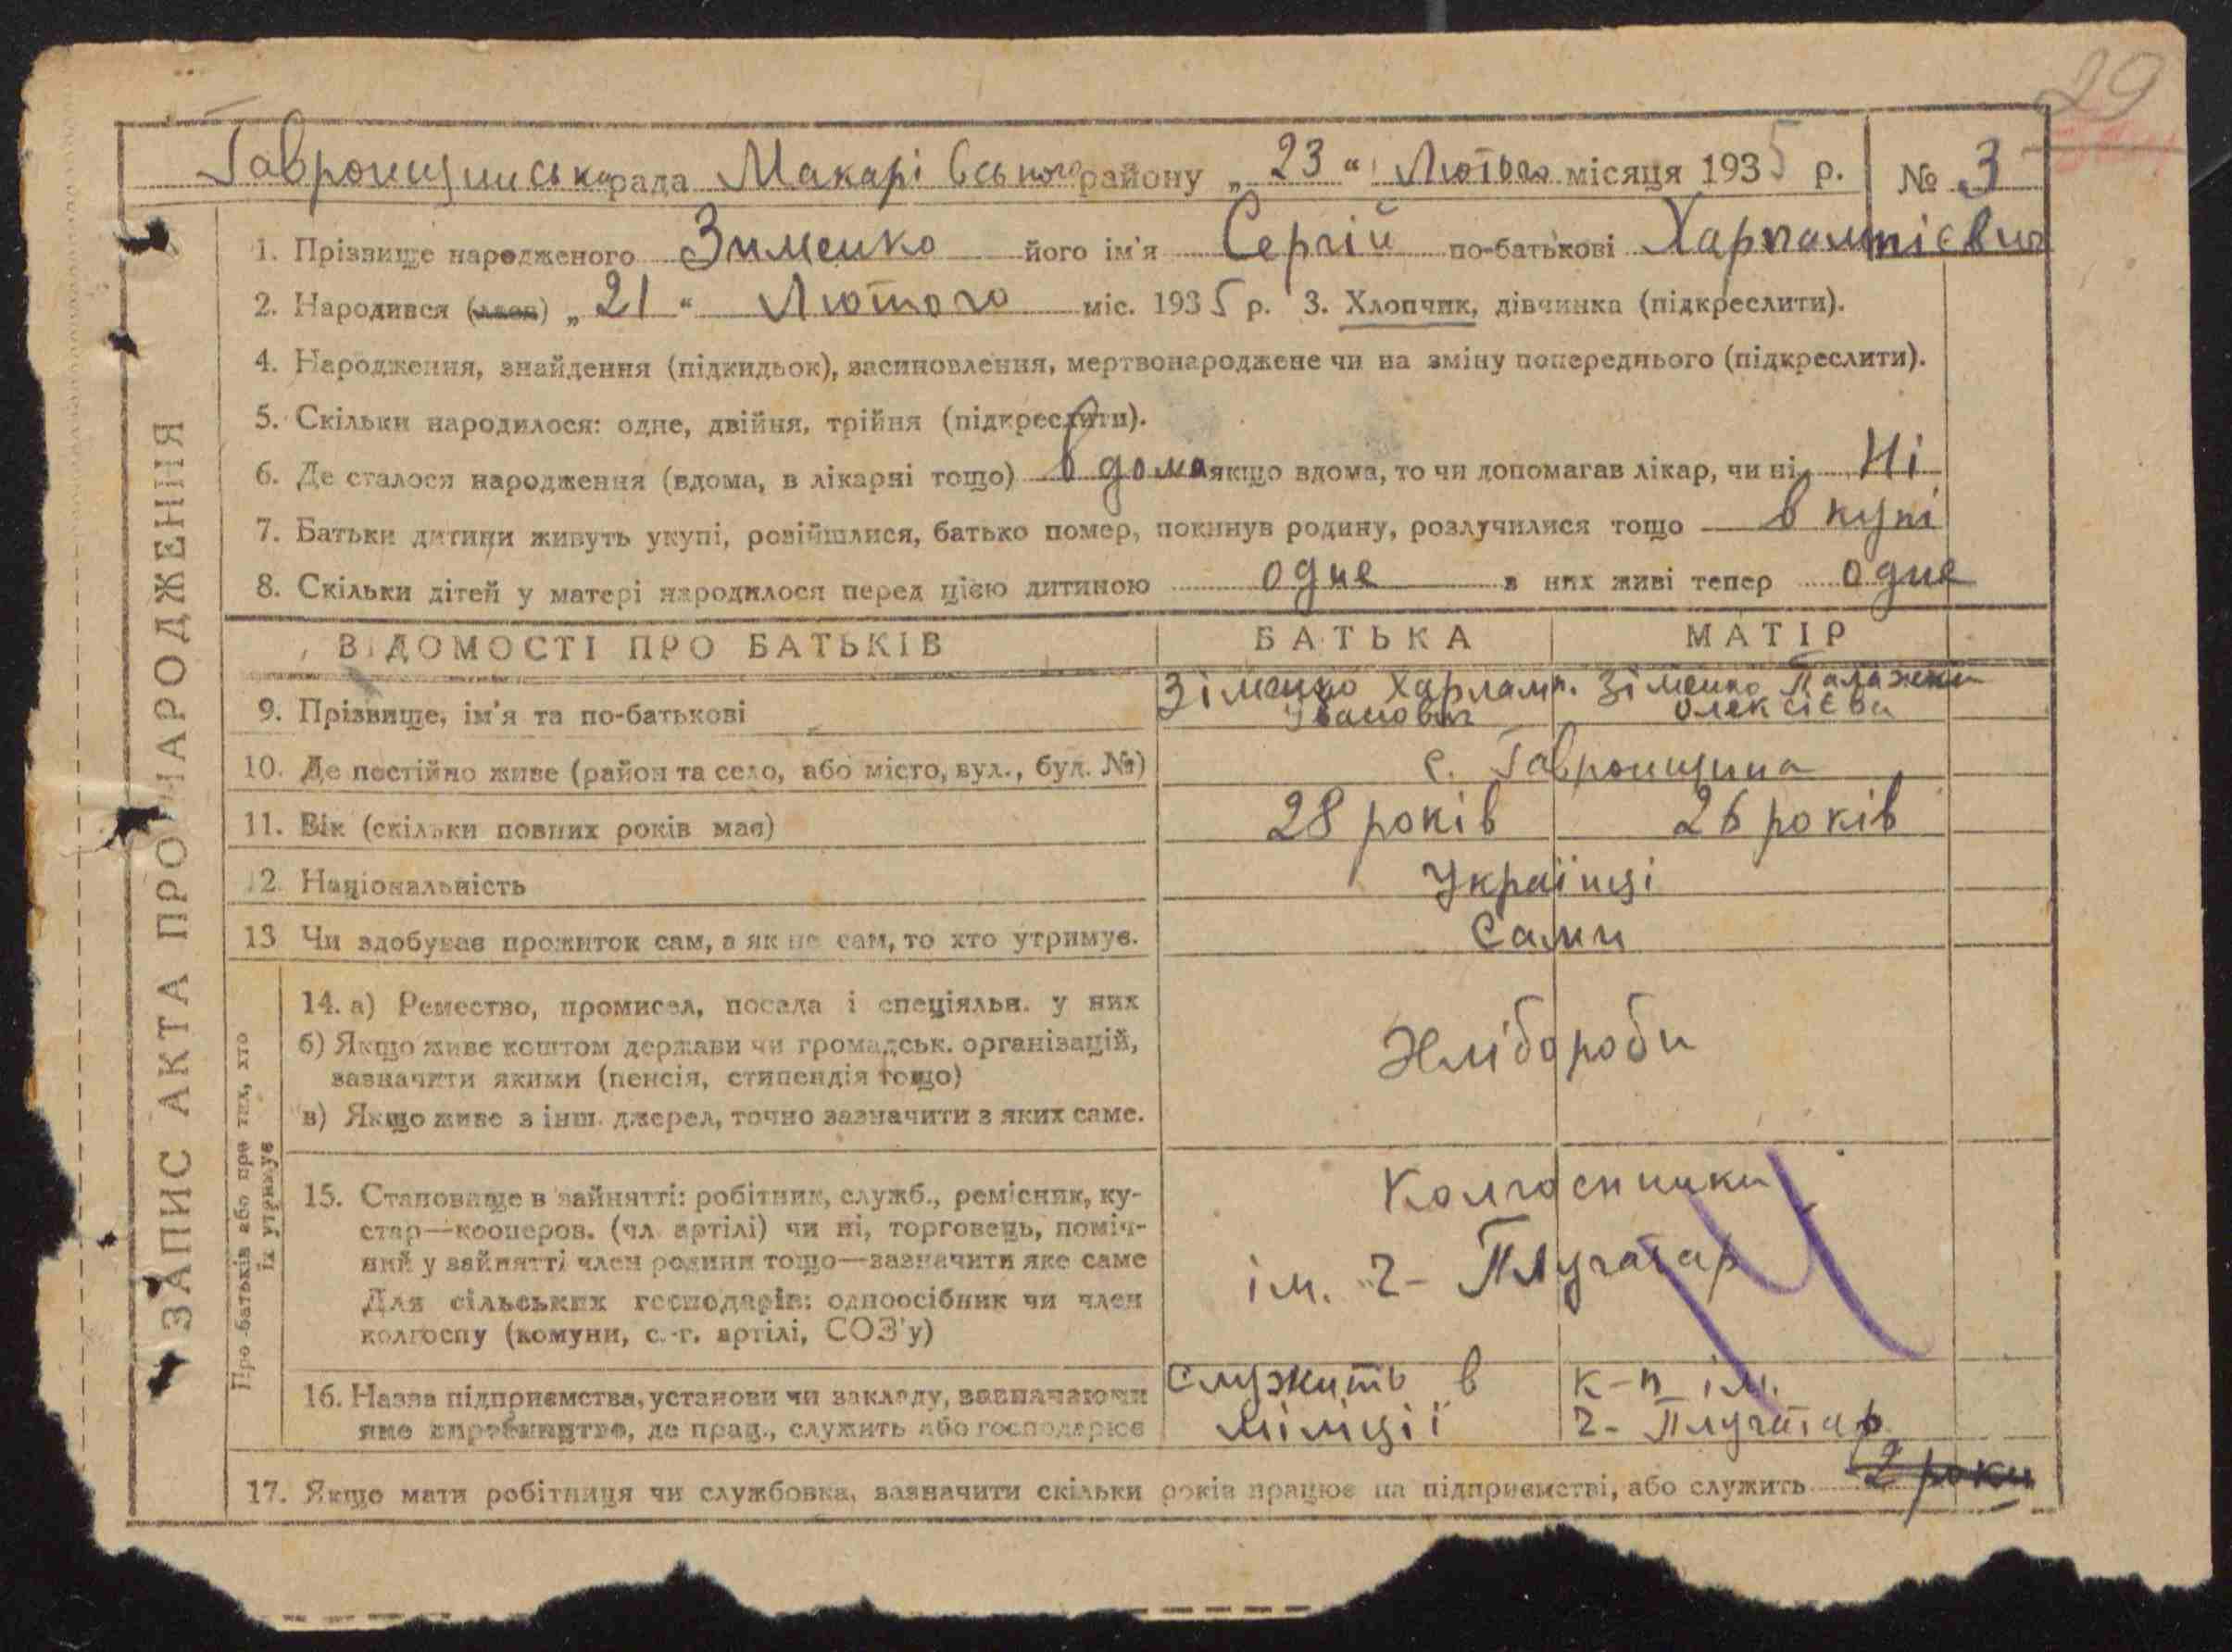 29
Гавронщинська рада Макарівського району „23“ Лютого місяця 1935 р. № 3
1. Прізвище народженого Зименко його ім'я Сергій по-батькові Харлампієвич
2. Народився (лась) „21“ Лютого міс. 1935 р. 3. Хлопчик, дівчинка (підкреслити).
4. Народження, знайдення (підкидьок), засиновлення, мертвонароджене чи на зміну попереднього (підкреслити).
5. Скільки народилося: одне, двійня, трійня (підкреслити).
6. Де сталося народження (вдома, в лікарні тощо) в дома якщо вдома, то чи допомагав лікар, чи ні Ні
7. Батьки дитини живуть укупі, розійшлися, батько помер, покинув родину, розлучилися тощо в купі
8. Скільки дітей у матері народилося перед цією дитиною одне з них живі тепер одне
ВІДОМОСТІ ПРО БАТЬКІВ БАТЬКА МАТІР
9. Прізвище, ім'я та по-батькові Зіменко Харламп. Іванович Зіменко Палажка Олексієва
10. Де постійно живе (район та село, або місто, вул., буд. №) с. Гавронщина
11. Вік (скільки повних років має) 28 років 26 років
12. Національність Українці
13 Чи здобуває прожиток сам, а як не сам, то хто утримує. Сами
Про батьків або про тих, хто їх утримує
14. а) Ремество, промисел, посада і спеціяльн. у них
б) Якщо живе коштом держави чи громадськ. організацій,
зазначити якими (пенсія, стипендія тощо)
в) Якщо живе з інш. джерел, точно зазначити з яких саме.
Хлібороби
15. Становище в зайнятті: робітник, служб., ремісник, ку-
стар—кооперов. (чл. артілі) чи ні, торговець, поміч-
ний у зайнятті член родини тощо—зазначити яке саме
Для сільських господарів: одноосібник чи член
колгоспу (комуни, с.-г. артілі, СОЗ'у)
Колгоспники
ім. Ч- Плугатар
16. Назва підприємства, установи чи закладу, зазначаючи
яке виробництво, де прац., служить або господарює
Служить в
міліції
к-п ім.
Ч- Плугатар
17. Якщо мати робітниця чи службовка, зазначити скільки років працює на підприємстві, або служить 2 роки
ЗАПИС АКТА ПРО НАРОДЖЕННЯ